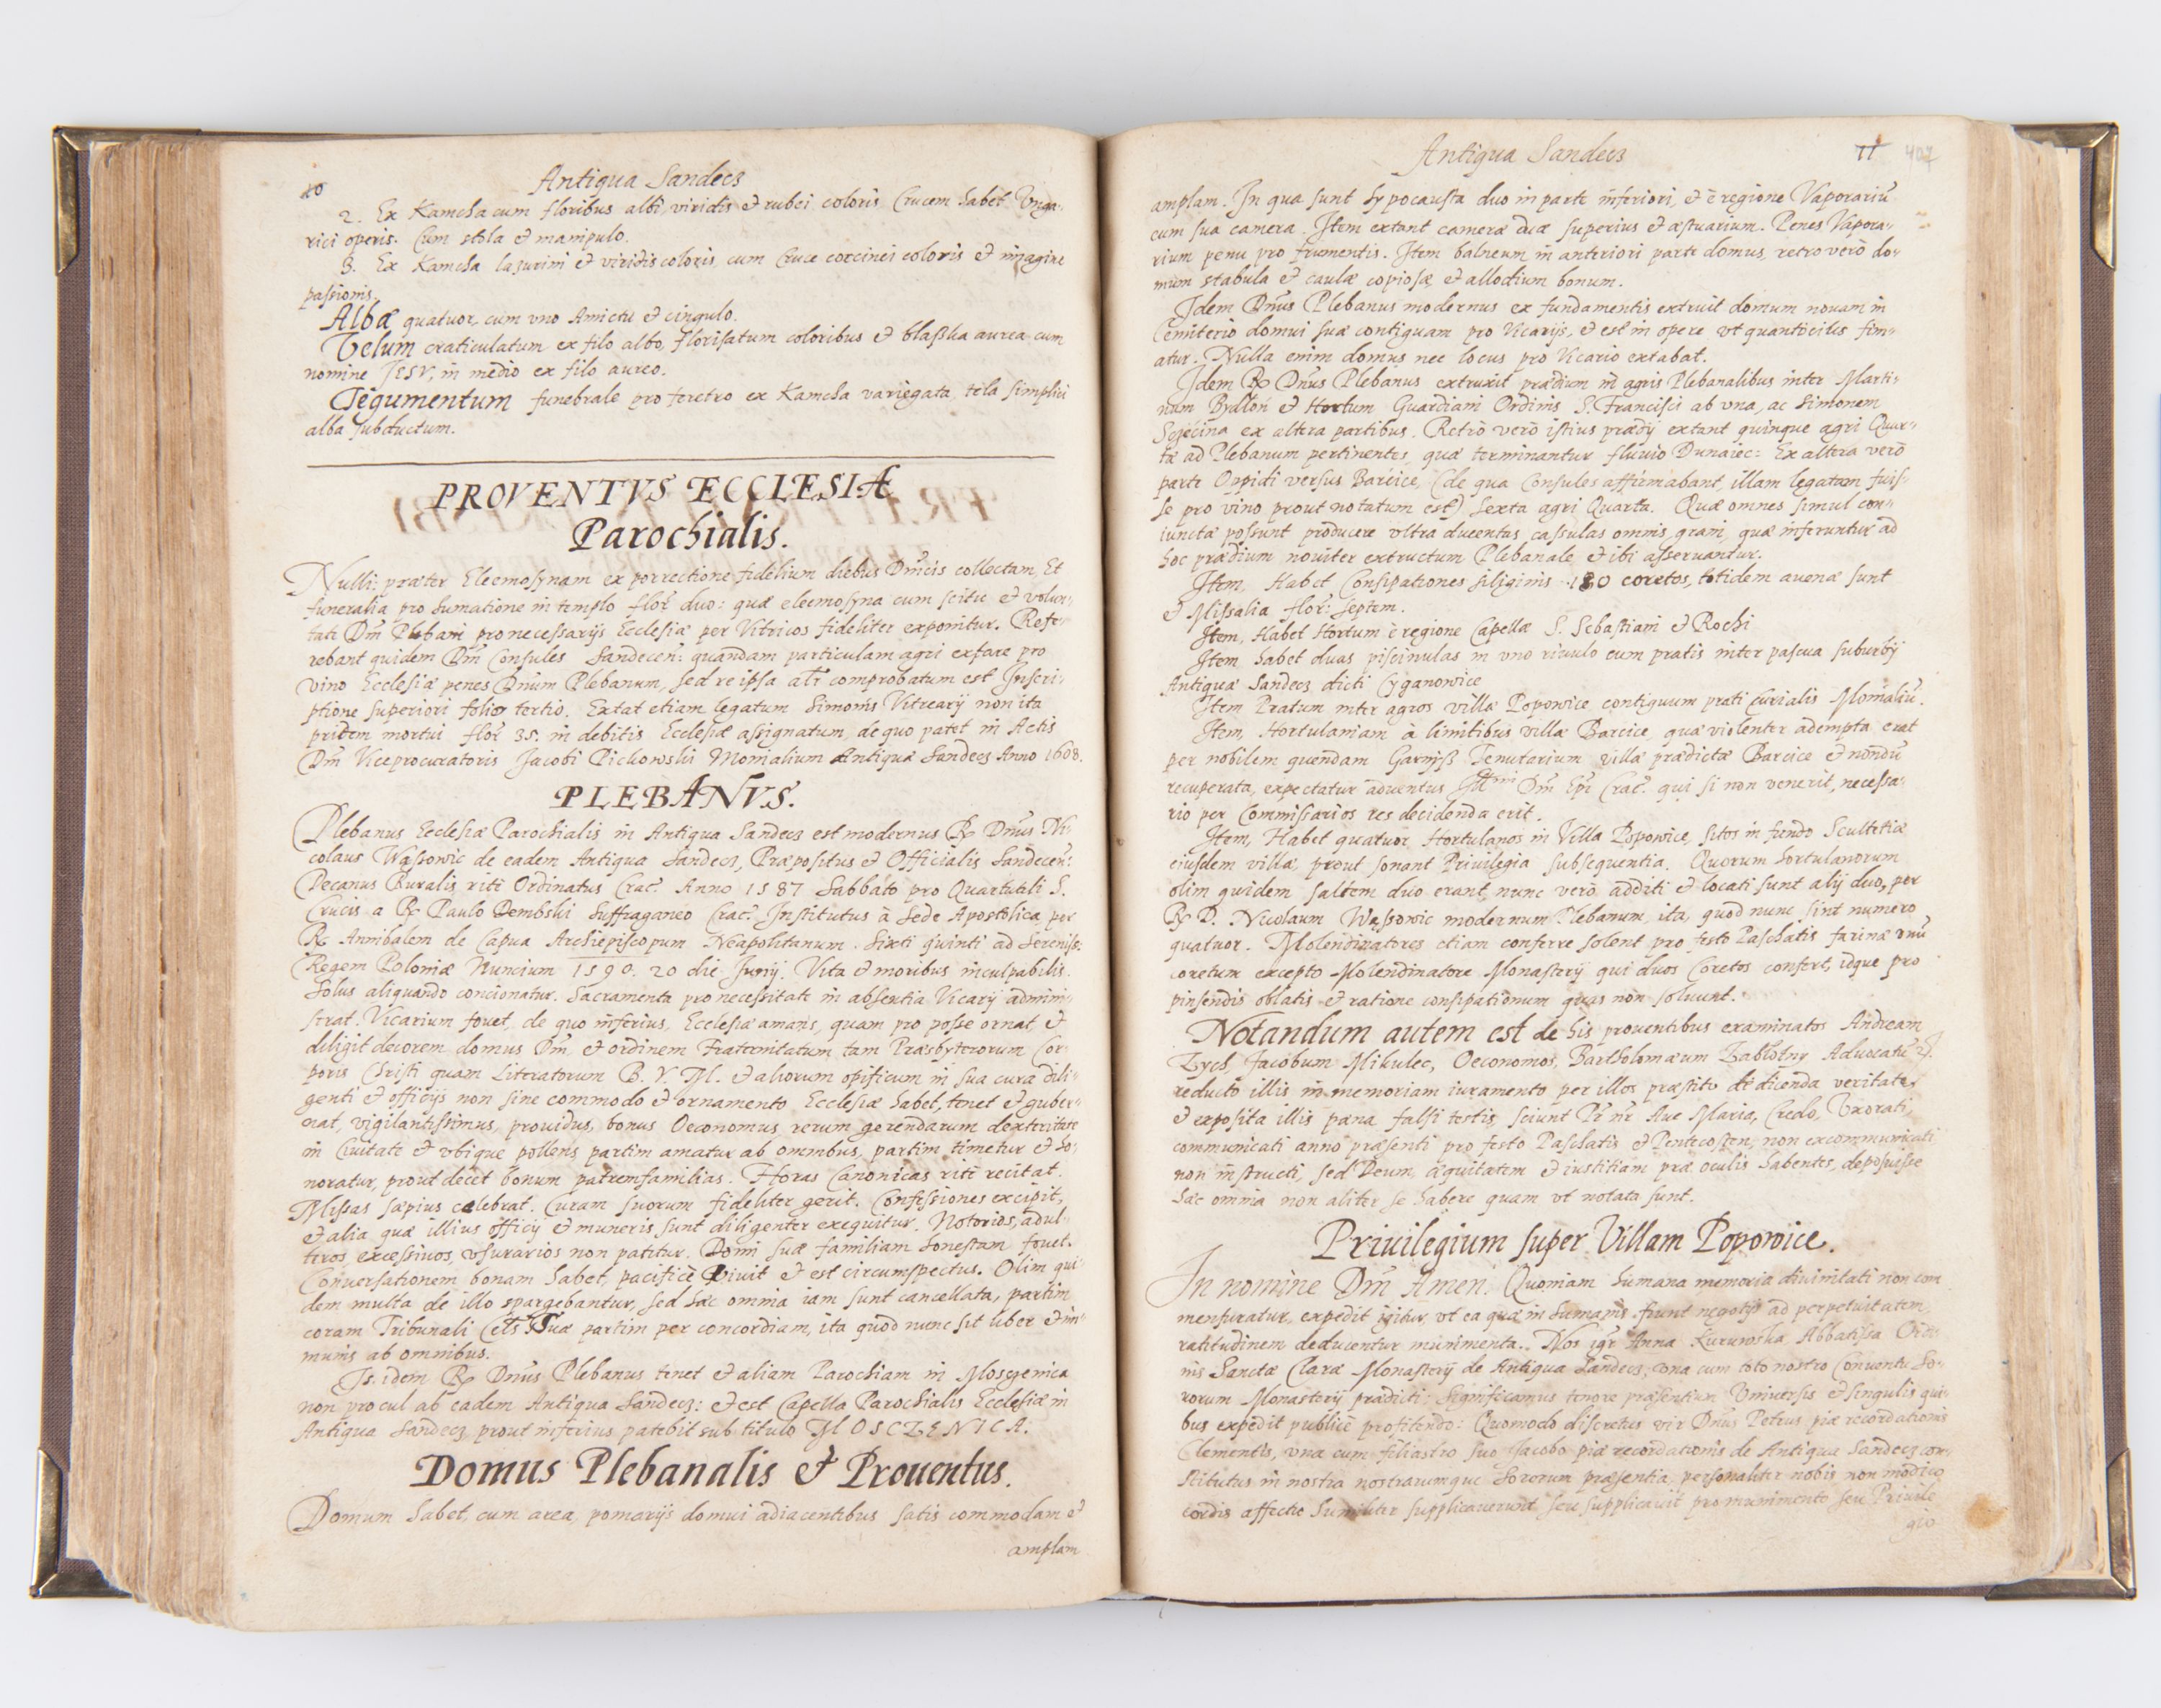 10
Antiqua Sandecz
2. Ex Kamcha cum floribus albi, viridis et rubei coloris Crucem habet Vnga-
rici operis. Cum stola et manipulo.
3. Ex Kamcha lazurini et viridis coloris, cum Cruce coccinei coloris et imagine
passionis.
Albæ quatuor, cum vno Amictu et cingulo.
Velum craticulatum ex filo albo, florisatum coloribus et blaszka aurea cum
nomine IESV, in medio ex filo aureo.
Tegumentum funebrale pro feretro ex Kamcha variegata tela simplici
alba subductum.
PROVENTVS ECCLESIÆ
Parochialis.
Nulli: præter Eleemosynam ex porrectione fidelium diebus Dnicis collectam, Et
funeralia pro humatione in templo flor: duo: quæ eleemosyna cum scitu et volun-
tate Dni Plebani pro necessarijs Ecclesiæ per Vitricos fideliter exponitur. Refe-
rebant quidem Dni Consules Sandecen: quandam particulam agri extare pro
vino Ecclesiæ penes Dnum Plebanum, sed re ipsa alr comprobatum est Inscri-
ptione superiori folio tertio. Extat etiam legatum Simonis Vitrearij non ita
pridem mortui flor. 35. in debitis Ecclesiæ assignatum, de quo patet in Actis
Dni Viceprocuratoris Jacobi Pichowski Monialium Antiquæ Sandecz Anno 1608.
PLEBANVS.
Plebanus Ecclesiæ Parochialis in Antiqua Sandecz est modernus R Dnus Ni-
colaus Wąssowic de eadem Antiqua Sandecz, Præpositus et Officialis Sandecen:
Decanus Ruralis ritè Ordinatus Crac. Anno 1587 Sabbato pro Quartuali S.
Crucis a R Paulo Dembski Suffraganeo Crac. Institutus à Sede Apostolica per
R Annibalem de Capua Archiepiscopum Neapolitanum. Sixti quinti ad Sereniss:
Regem Poloniæ Nuncium 1590. 20 die Junij. Vita et moribus inculpabilis.
Solus aliquando concionatur. Sacramenta pro necessitate in absentia Vicarij admini-
strat. Vicarium fouet, de quo inferius, Ecclesiæ amans, quam pro posse ornat, et
diligit decorem domus Dni et ordinem Fraternitatum tam Præsbyterorum Cor-
poris Christi quam Literatorum B. V. M. et aliorum opificum in sua cura dili-
genti et officijs non sine commodo et ornamento Ecclesiæ habet, tenet et guber-
nat, vigilantissimus, prouidus, bonus Oeconomus, rerum gerendarum dexteritate
in Ciuitate et vbique pollens partim amatur ab omnibus, partim timetur et ho-
noratur, prout decet bonum patremfamilias. Horas Canonicas ritè recitat.
Missas sæpius celebrat. Curam suorum fideliter gerit. Confessiones excipit,
et alia quæ illius officij et muneris sunt diligenter exequitur. Notorios, adul-
teros, excessiuos, vsurarios non patitur. Domi suæ familiam honestam fouet.
Conuersationem bonam habet, pacificè viuit et est circumspectus. Olim qui-
dem multa de illo spargebantur, sed hæc omnia iam sunt cancellata, partim
coram Tribunali Cels suæ partim per concordiam, ita quod nunc sit liber et im-
munis ab omnibus.
Is. idem R Dnus Plebanus tenet et aliam Parochiam in Moszczenica
non procul ab eadem Antiqua Sandecz: et est Capella Parochialis Ecclesiæ in
Antiqua Sandecz prout inferius patebit sub titulo MOSCZENICA.
Domus Plebanalis et Prouentus.
Domum habet, cum area, pomarijs domui adiacentibus satis commodam et
amplam
Antiqua Sandecz
11
407
amplam. In qua sunt hypocausta duo in parte inferiori, et è regione Vaporariũ
cum sua camera. Item extant cameræ duæ superius et æstuarium. Penes Vapora-
rium penu pro frumentis. Item balneum in anteriori parte domus, retro verò do-
mum stabula et caulæ copiosæ et allodium bonum.
Idem Dnus Plebanus modernus ex fundamentis extruit domum nouam in
Cemiterio domui suæ contiguam pro Vicarijs, et est in opere vt quantocius fini-
atur. Nulla enim domus nec locus pro Vicario extabat.
Idem R Dnus Plebanus extruxit prædium in agris Plebanalibus inter Marti-
num Bydłoń et Hortum Guardiani Ordinis S. Francisci ab vna, ac Simonem
Sojecina ex altera partibus. Retrò verò istius prædij extant quinque agri Quar-
tæ ad Plebanum pertinentes, quæ terminantur fluuio Dunaiec: Ex altera verò
parte Oppidi versus Barcice, (de qua Consules affirmabant, illam legatam fuis-
se pro vino prout notatum est) sexta agri Quarta. Quæ omnes simul con-
iunctæ possunt producere vltra ducentas cassulas omnis grani, quæ inferuntur ad
hoc prædium nouiter extructum Plebanale, et ibi asseruantur.
Item, Habet Consipationes siliginis 180 coretos, totidem auenæ sunt
et Missalia flor: septem.
Item, Habet Hortum è regione Capellæ S. Sebastiani et Rochi
Item habet duas piscinulas in vno riuulo cum pratis inter pascua suburbij
Antiquæ Sandecz dicti Cyganowice
Item Pratum inter agros villæ Popowice contiguum prati Curialis Monialiũ.
Item, Hortulaniam à limitibus villæ Barcice, quæ violenter adempta erat
per nobilem quendam Garnysz Tenutarium villæ prædictæ Barcice et nondũ
recuperata, expectatur aduentus Illmi Dni Epi Crac. qui si non venerit, necessa-
rio per Commissarios res decidenda erit.
Item, Habet quatuor Hortulanos in Villa Popowice, sitos in fundo Scultetiæ
eiusdem villæ, prout sonant Priuilegia subsequentia. Quorum hortulanorum
olim quidem saltem duo erant, nunc verò additi et locati sunt alij duo, per
R D. Nicolaum Wąssowic modernum Plebanum, ita, quod nunc sint numero
quatuor. Molendinatores etiam conferre solent pro festo Paschatis farinæ vnũ
coretum excepto Molendinatore Monasterij qui duos Coretos confert, idque pro
pinsendis oblatis et ratione consipationum quas non soluunt.
Notandum autem est de his prouentibus examinatos Andream
Zych, Jacobum Mikulec, Oeconomos, Bartholomæum Zabłotny Aduocatũ
reducto illis in memoriam iuramento per illos præstito de dicenda veritate,
et exposita illis pæna falsi testis, sciunt Pr nr Aue Maria, Credo, Vxorati,
communicati anno præsenti pro festo Paschatis et Pentecosten, non excommunicati
non instructi, sed Deum, æquitatem et iustitiam præ oculis habentes, deposuisse
hæc omnia non aliter se habere quam vt notata sunt.
Priuilegium super Villam Popowice.
In nomine Dni Amen. Quoniam humana memoria diuinitati non com
mensuratur, expedit igitur, vt ea quæ in humanis fiunt negotijs ad perpetuitatem
ratitudinem deducentur munimenta. Nos igr Anna Kurowska Abbatissa Ordi-
nis Sanctæ Claræ Monasterij de Antiqua Sandecz, vna cum toto nostro Conuentu So-
rorum Monasterij prædicti; Significamus tenore præsentium Vniuersis et singulis qui-
bus expedit publicè profitendo: Quomodo discretus vir Dnus Petrus piæ recordationis
Clementis, vna cum filiastro suo Jacobo piæ recordationis de Antiqua Sandecz con-
stitutus in nostra nostrarumque Sororum præsentia, personaliter nobis non modico
cordis affectu humiliter supplicauerunt seu supplicauit pro munimento seu Priuile
gio